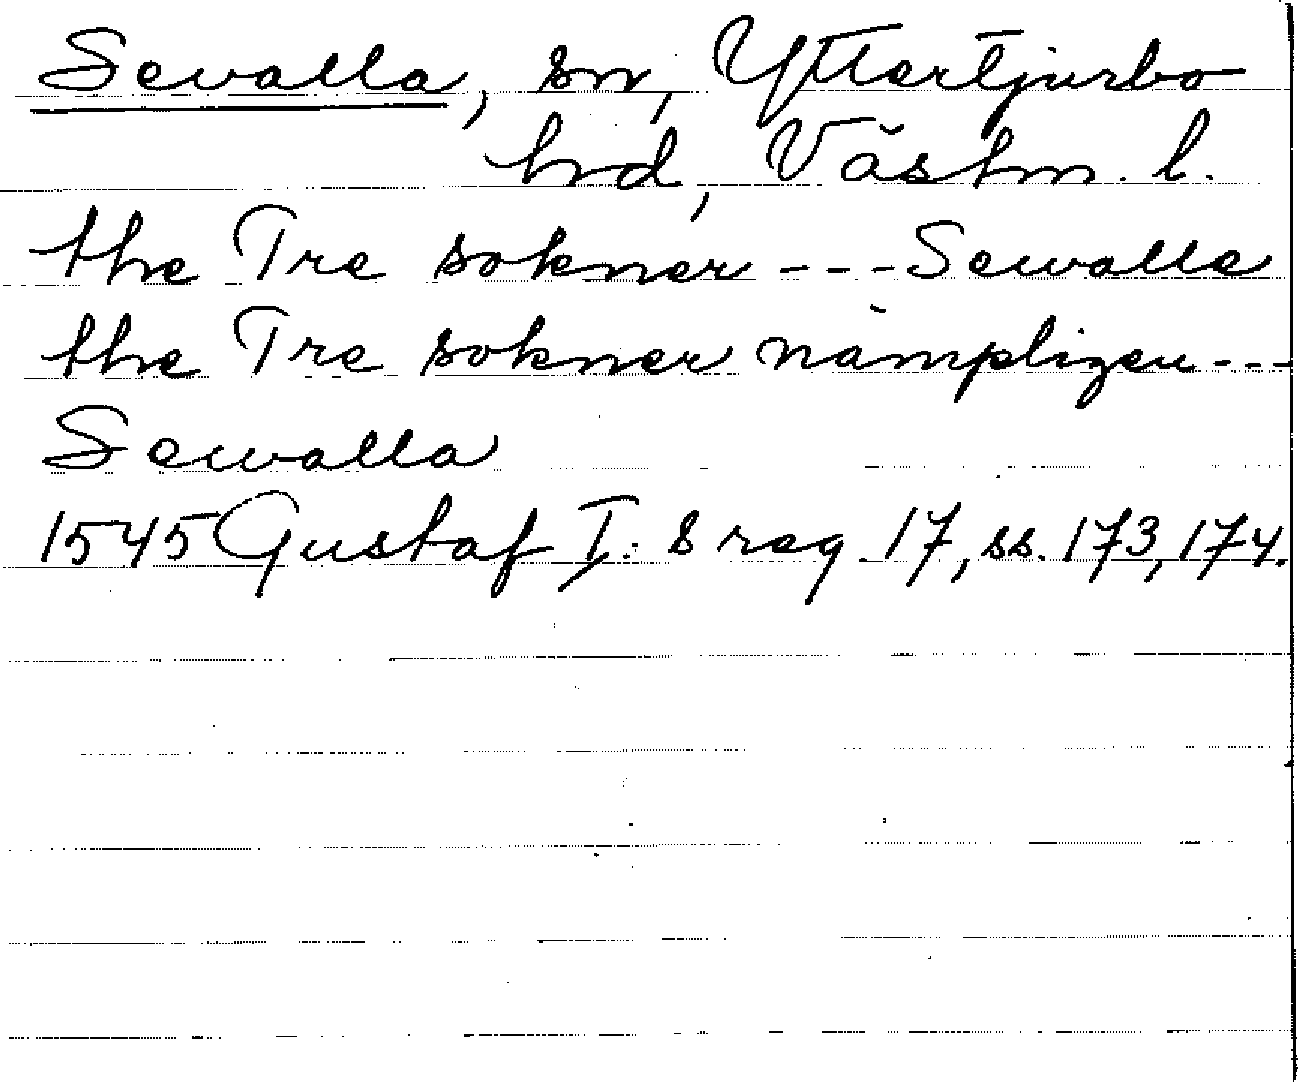 Sevalla, sn, Yttertjurbo
hrd, Västm. l.
the Tre sokner --- Sewalla
the Tre sokner nämpligen ---
Sewalla
1545 Gustaf I:s reg. 17, ss. 173, 174.